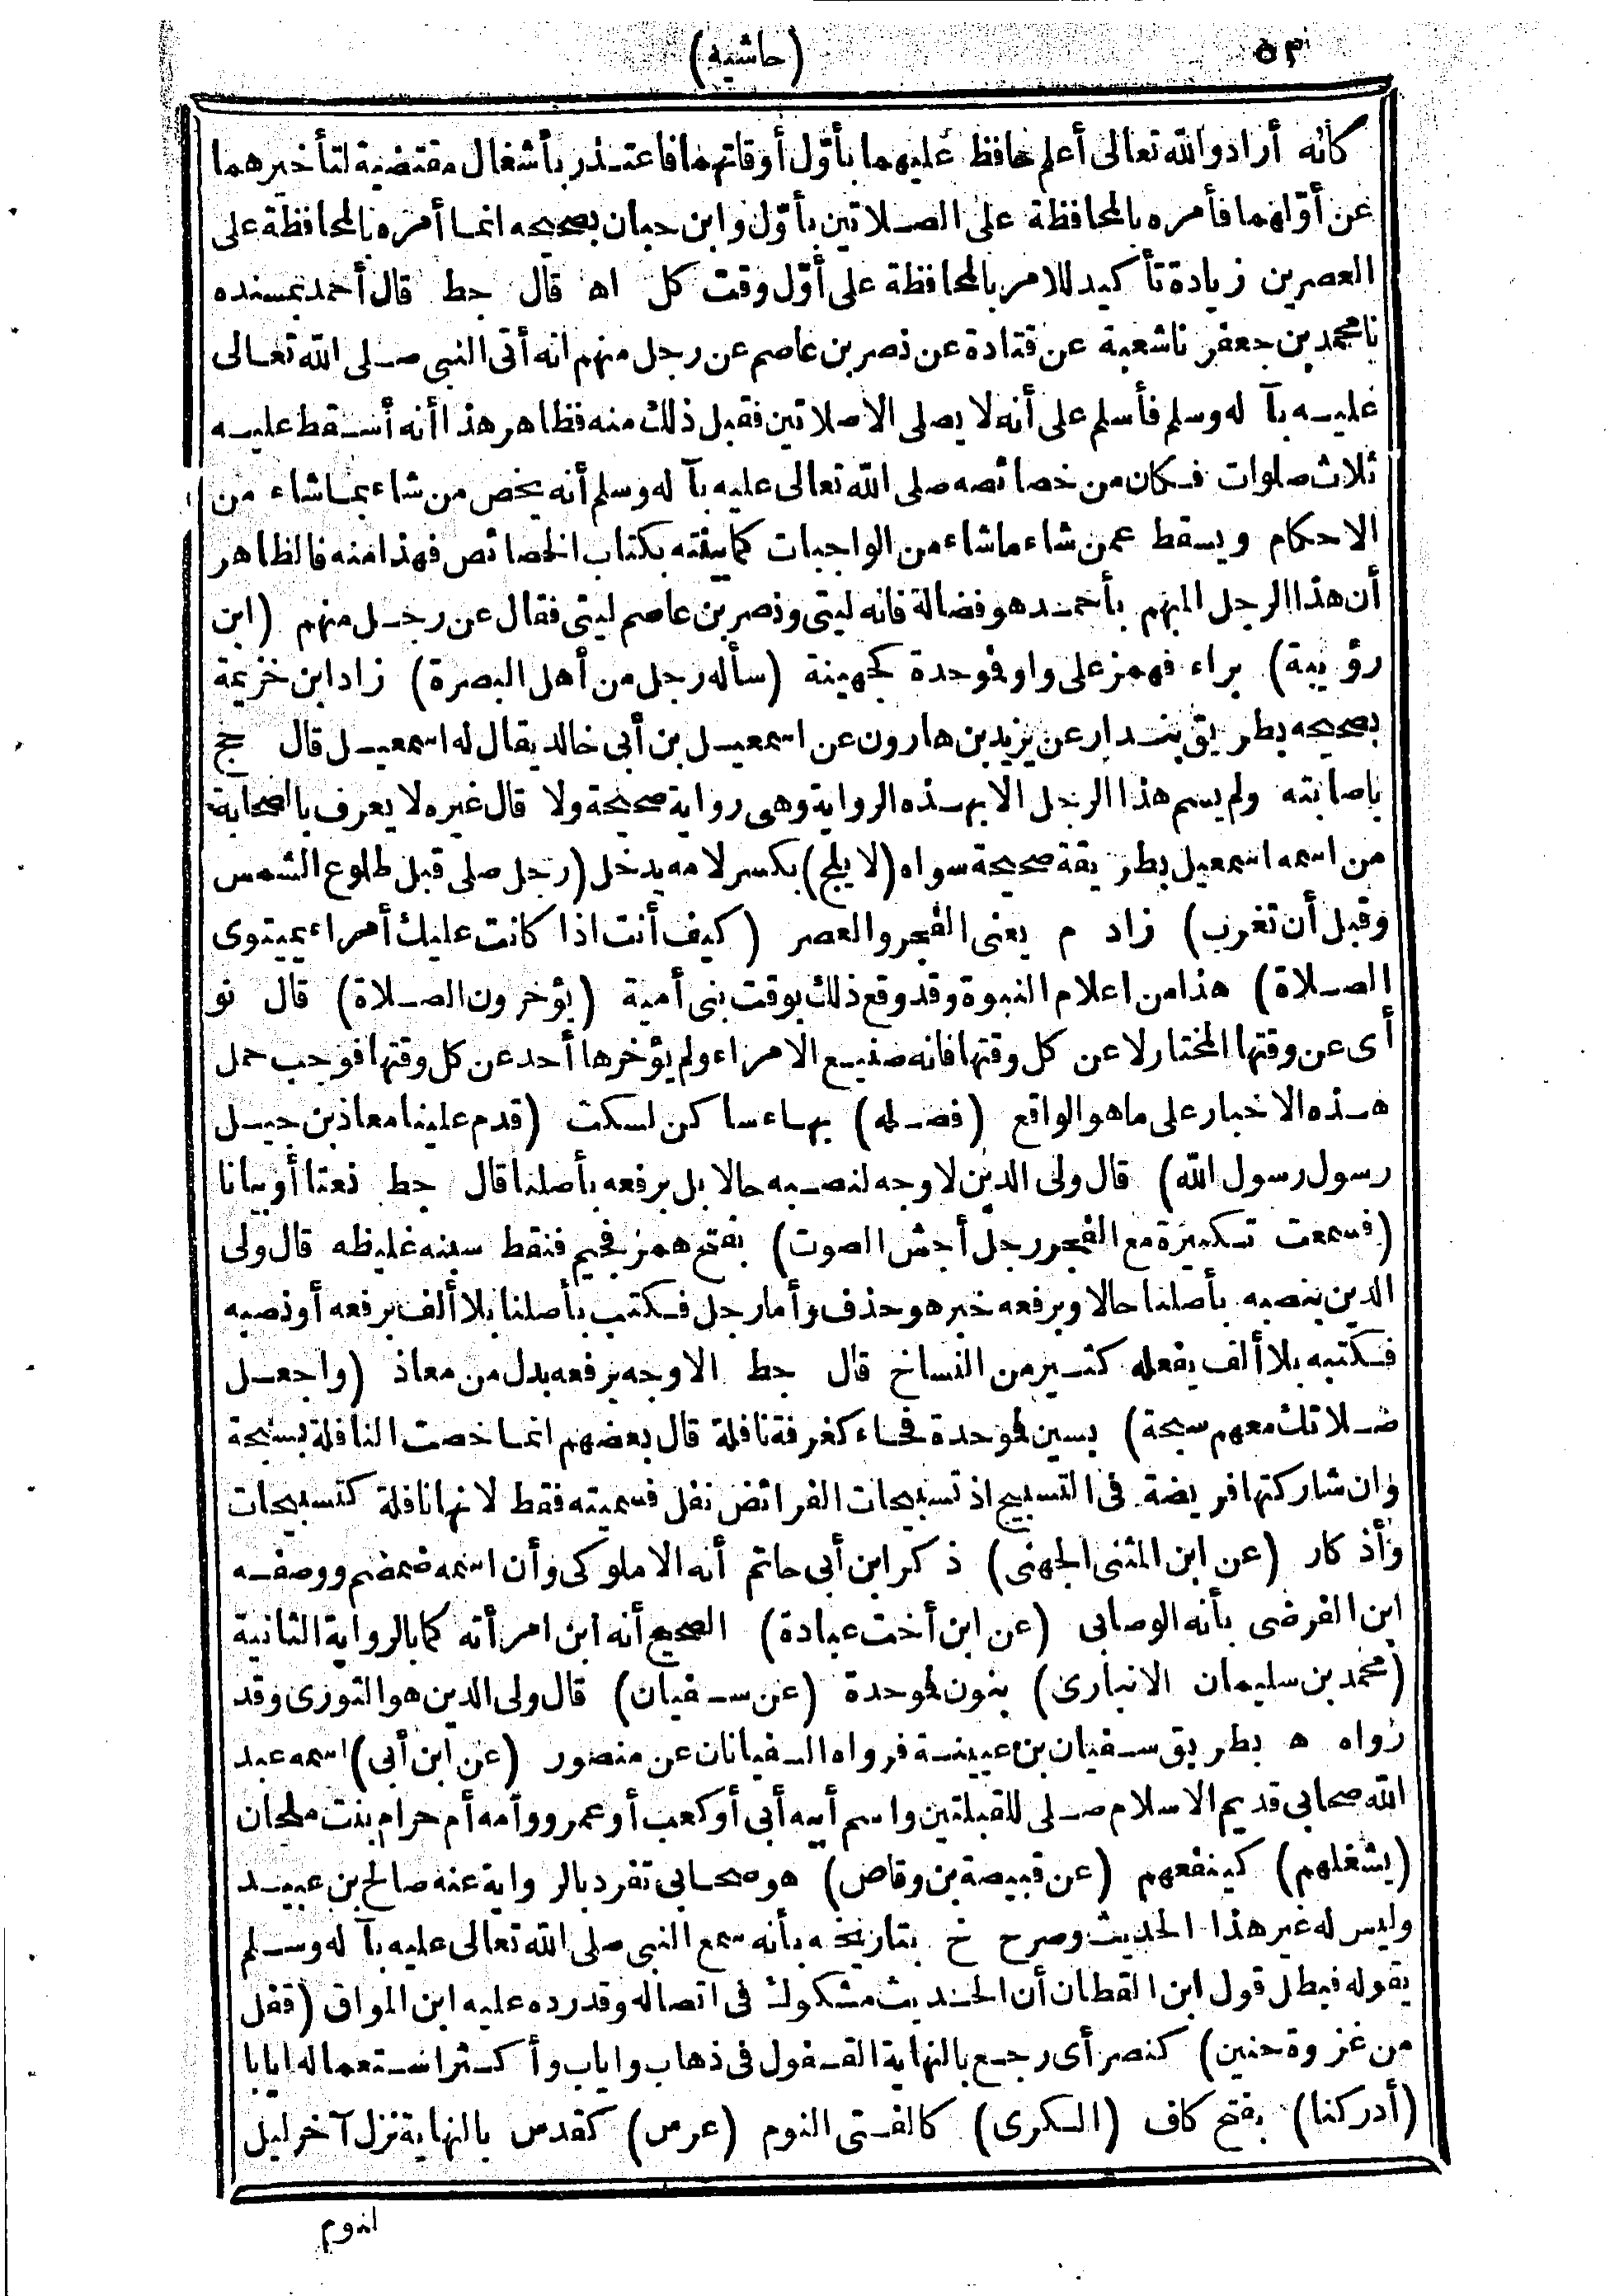 ٥٣
(حاشيه)
كأنه أراد والله تعالى أعلم حافظ عليهما بأوّل أوقاتهما فاعتذر بأشغال مقتضية لتأخيرهما
عن أوّلهما فأمره بالمحافظة على الصلاتين بأوّل وابن حبان بصحيحه انما أمره بالمحافظة على
العصرين زيادة تأكيد للامر بالمحافظة على أوّل وقت كل اه قال حط قال أحمد بمسنده
نا محمد بن جعفر نا شعبة عن قتادة عن نصر بن عاصم عن رجل منهم انه أتى النبي صلى الله تعالى
عليه بآله وسلم فأسلم على أنه لا يصلى الا صلاتين فقبل ذلك منه فظاهر هذا أنه أسقط عليه
ثلاث صلوات فكان من خصائصه صلى الله تعالى عليه بآله وسلم أنه يخص من شاء بما شاء من
الاحكام ويسقط عمن شاء ما شاء من الواجبات كما بينته بكتاب الخصائص فهذا منه فالظاهر
أن هذا الرجل المبهم بأحمد هو فضالة فانه ليثى ونصر بن عاصم ليثى فقال عن رجل منهم (ابن
رؤيبة) براء فهمز على واو فوحدة كجهينة (سأله رجل من أهل البصرة) زاد ابن خزيمة
بصحيحه بطريق بندار عن يزيد بن هارون عن اسمعيل بن أبى خالد يقال له اسمعيل قال حج
باصابته ولم يسم هذا الرجل الا بهذه الرواية وهى رواية صحيحة ولا قال غيره لا يعرف بالصحابة
من اسمه اسمعيل بطريقة صحيحة سواه (لا يلج) بكسر لامه يدخل (رجل صلى قبل طلوع الشمس
وقبل أن تغرب) زاد م يعنى الفجر والعصر (كيف أنت اذا كانت عليك أمراء يميتوى
الصلاة) هذا من اعلام النبوة وقد وقع ذلك بوقت بنى أمية (يؤخرون الصلاة) قال نو
أى عن وقتها المختار لا عن كل وقتها فانه صنيع الامراء ولم يؤخرها أحد عن كل وقتها فوجب حمل
هذه الاخبار على ما هو الواقع (فصله) بهاء ساكن لسكت (قدم علينا معاذ بن جبل
رسول رسول الله) قال ولى الدين لا وجه لنصبه حالا بل برفعه بأصلنا قال حط نعتا أو بيانا
(فسمعت تكبيرة مع الفجر رجل أجش الصوت) بفتح همز فجيم فنقط سينه غليظه قال ولى
الدين ينصبه بأصلنا حالا وبرفعه خبر هو حذف وأما رجل فكتب بأصلنا بلا ألف برفعه أو نصبه
فكتبه بلا ألف يفعله كثير من النساخ قال حط الاوجه برفعه بدل من معاذ (واجعل
صلاتك معهم سبحة) بسين فموحدة فحاء كغرفة نافلة قال بعضهم انما خصت النافلة بسبحة
وان شاركتها فريضة فى التسبيح اذ تسبيحات الفرائض نفل فسميته فقط لانها نافلة كتسبيحات
وأذكار (عن ابن المثنى الجهنى) ذكر ابن أبى حاتم أنه الاملوكى وأن اسمه ضمضم ووصفه
ابن الفرضى بأنه الوصابى (عن ابن أخت عبادة) الصحيح أنه ابن امرأته كما بالرواية الثانية
(محمد بن سليمان الانبارى) بنون فموحدة (عن سفيان) قال ولى الدين هو الثورى وقد
رواه ه بطريق سفيان بن عيينة فرواه السفيانان عن منصور (عن ابن أبى) اسمه عبد
الله صحابى قديم الاسلام صلى للقبلتين واسم أبيه أبى أو كعب أو عمرو وأمه أم حرام بنت ملحان
(يشغلهم) كينفعهم (عن قبيصة بن وقاص) هو صحابى تفرد بالرواية عنه صالح بن عبيد
وليس له غير هذا الحديث وصرح خ بتاريخه بأنه سمع النبى صلى الله تعالى عليه بآله وسلم
يقوله فبطل قول ابن القطان أن الحديث مشكوك فى اتصاله وقد رده عليه ابن المواق (قفل
من غزوة حنين) كنصر أى رجع بالنهاية القفول فى ذهاب واياب وأكثر استعماله ايابا
(أدركنا) بفتح كاف (الكرى) كالفتى النوم (عرس) كقدس بالنهاية نزل آخر ليل
لنوم